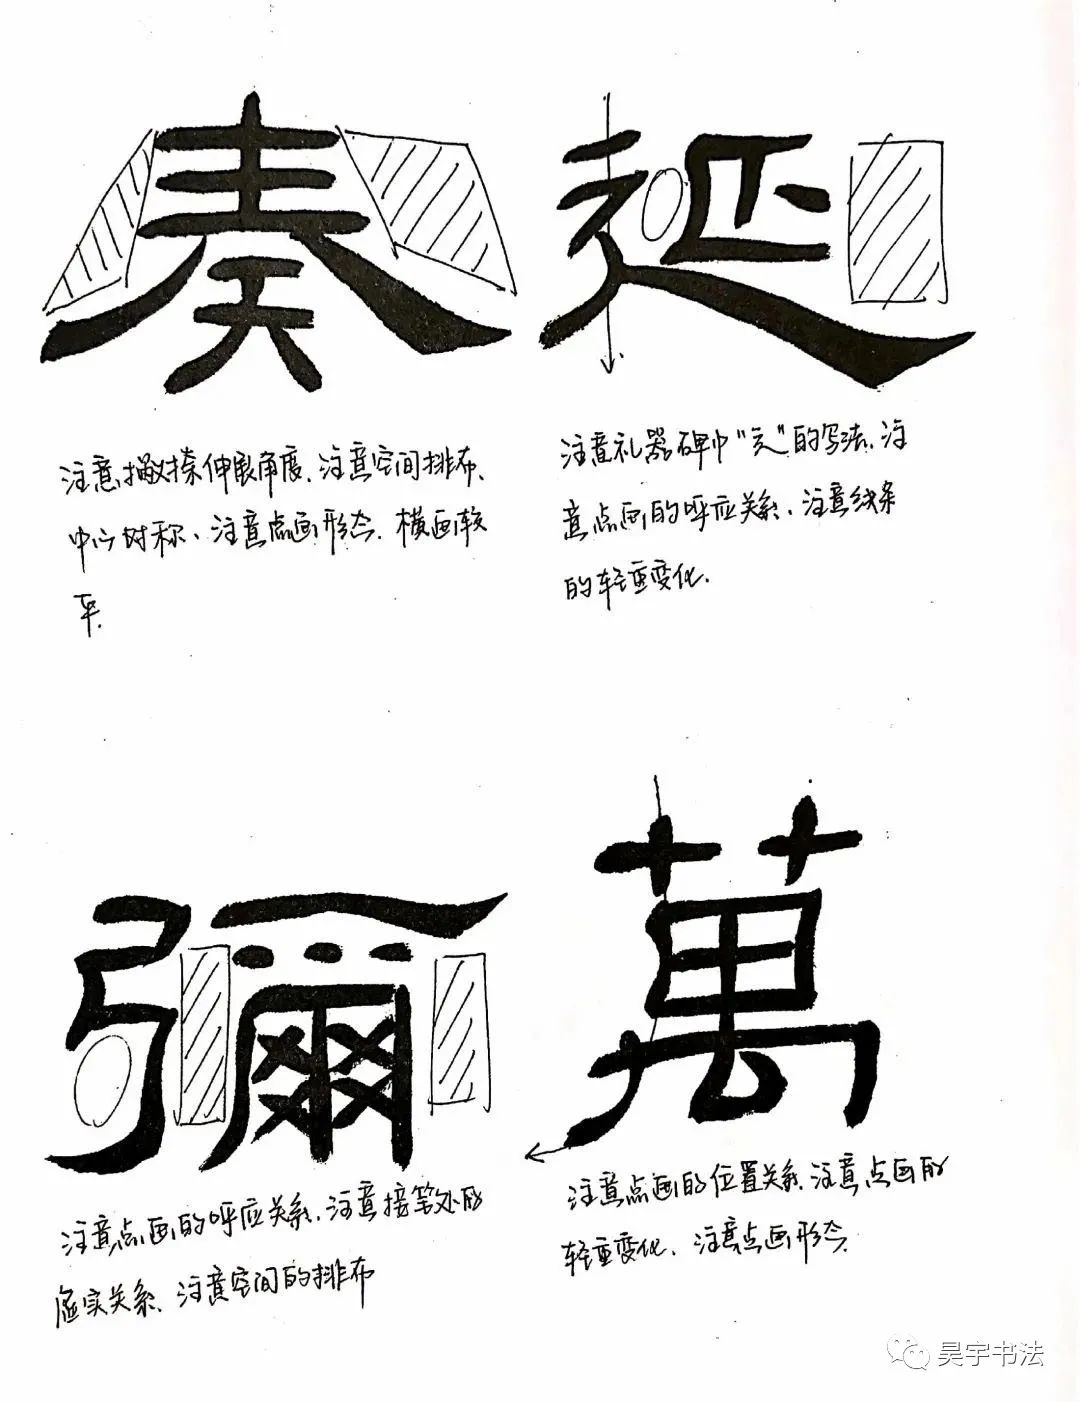 奏
延
注意撇捺伸展角度、注意空间排布、
中心对称、注意点画形态、横画较
平.
注意礼器碑中“廴”的写法、注
意点画的呼应关系、注意线条
的轻重变化.
彌
萬
注意点画的呼应关系、注意接笔处的
虚实关系、注意空间的排布
注意点画的位置关系、注意点画的
轻重变化、注意点画形态.
昊宇书法